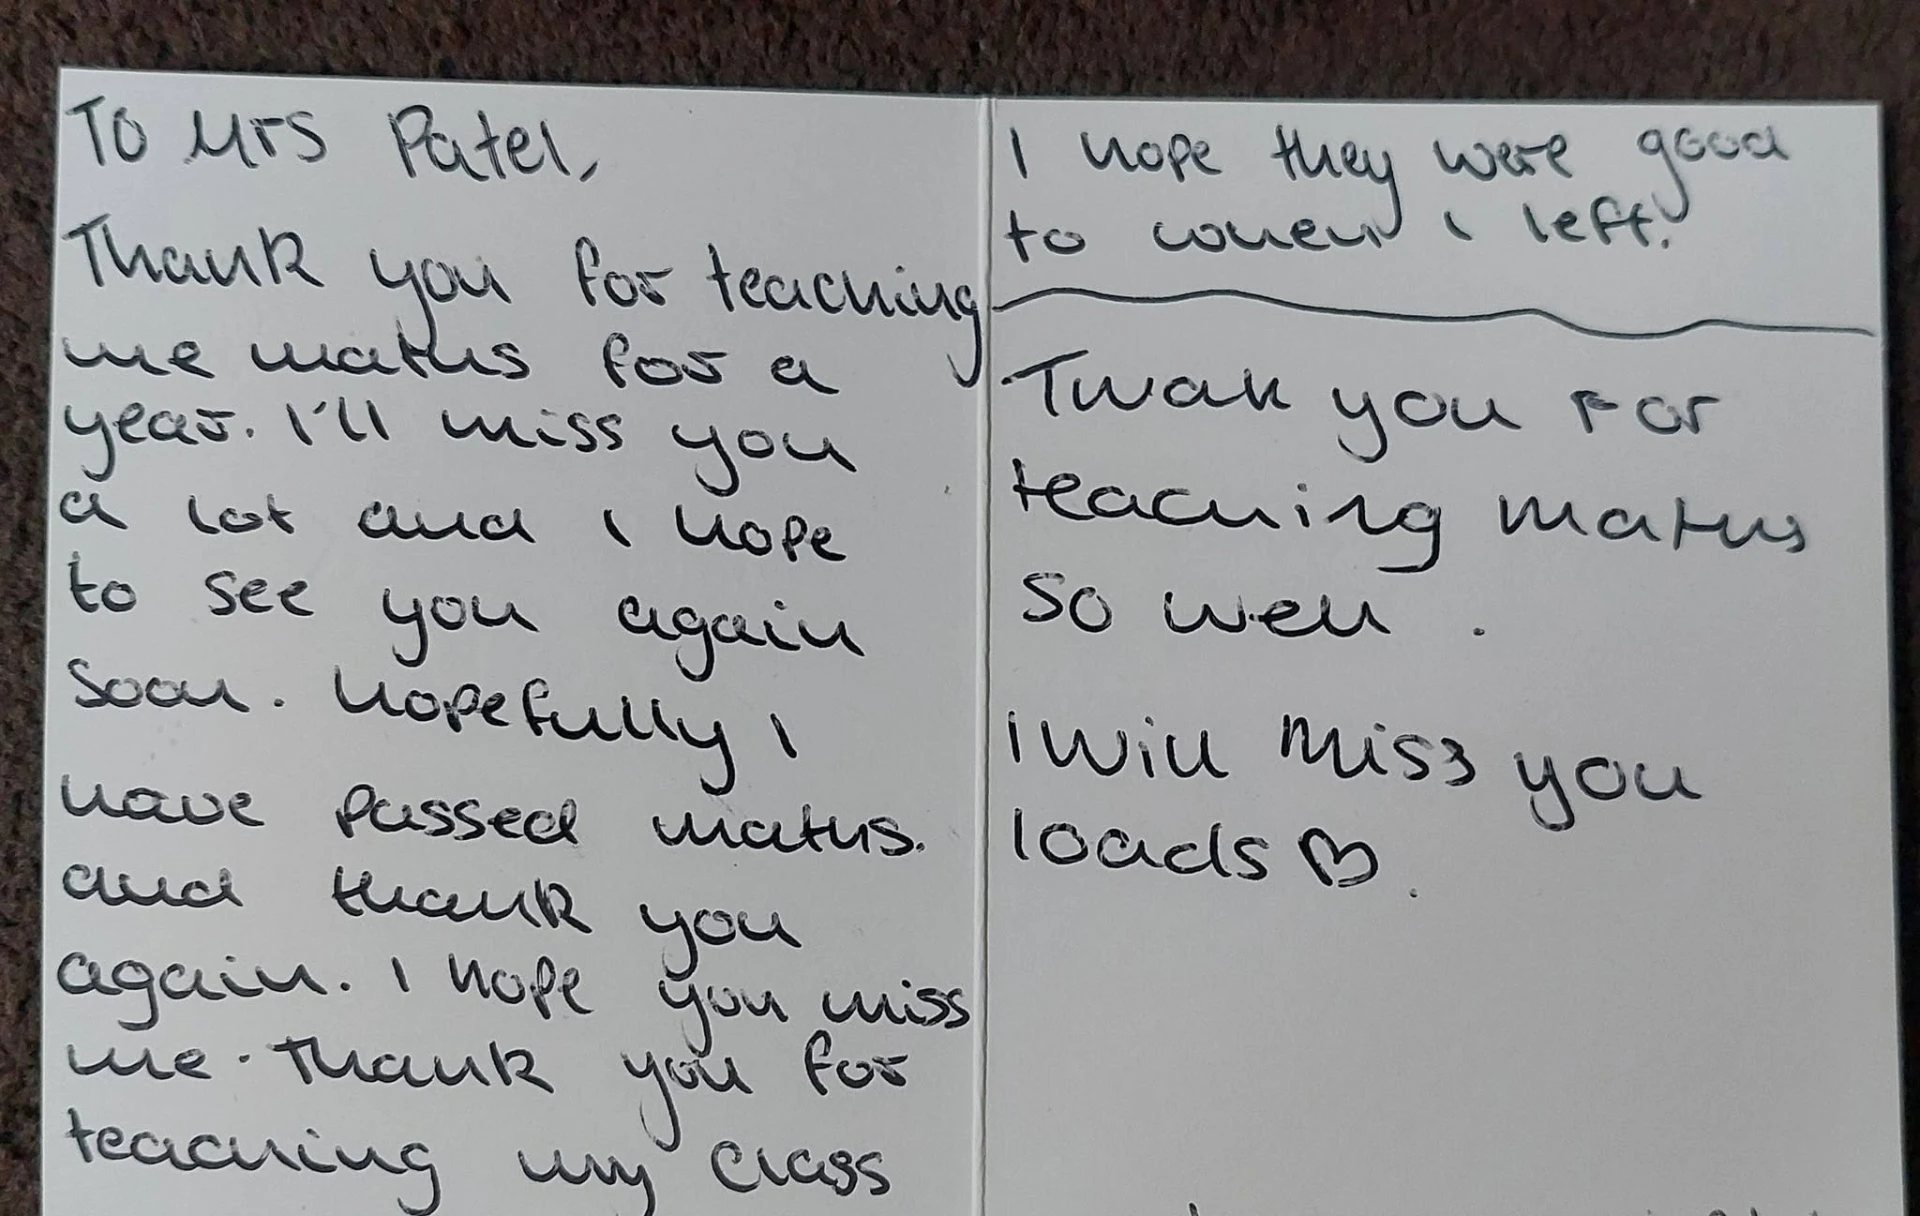 To Mrs Patel,
Thank you for teaching
me maths for a
year. I'll miss you
a lot and I hope
to see you again
soon. hopefully I
have passed maths.
and thank you
again. I hope you miss
me. Thank you for
teaching my class
I hope they were good
to when I left!
Thak you For
teaching maths
so well.
I will miss you
loads ♡.